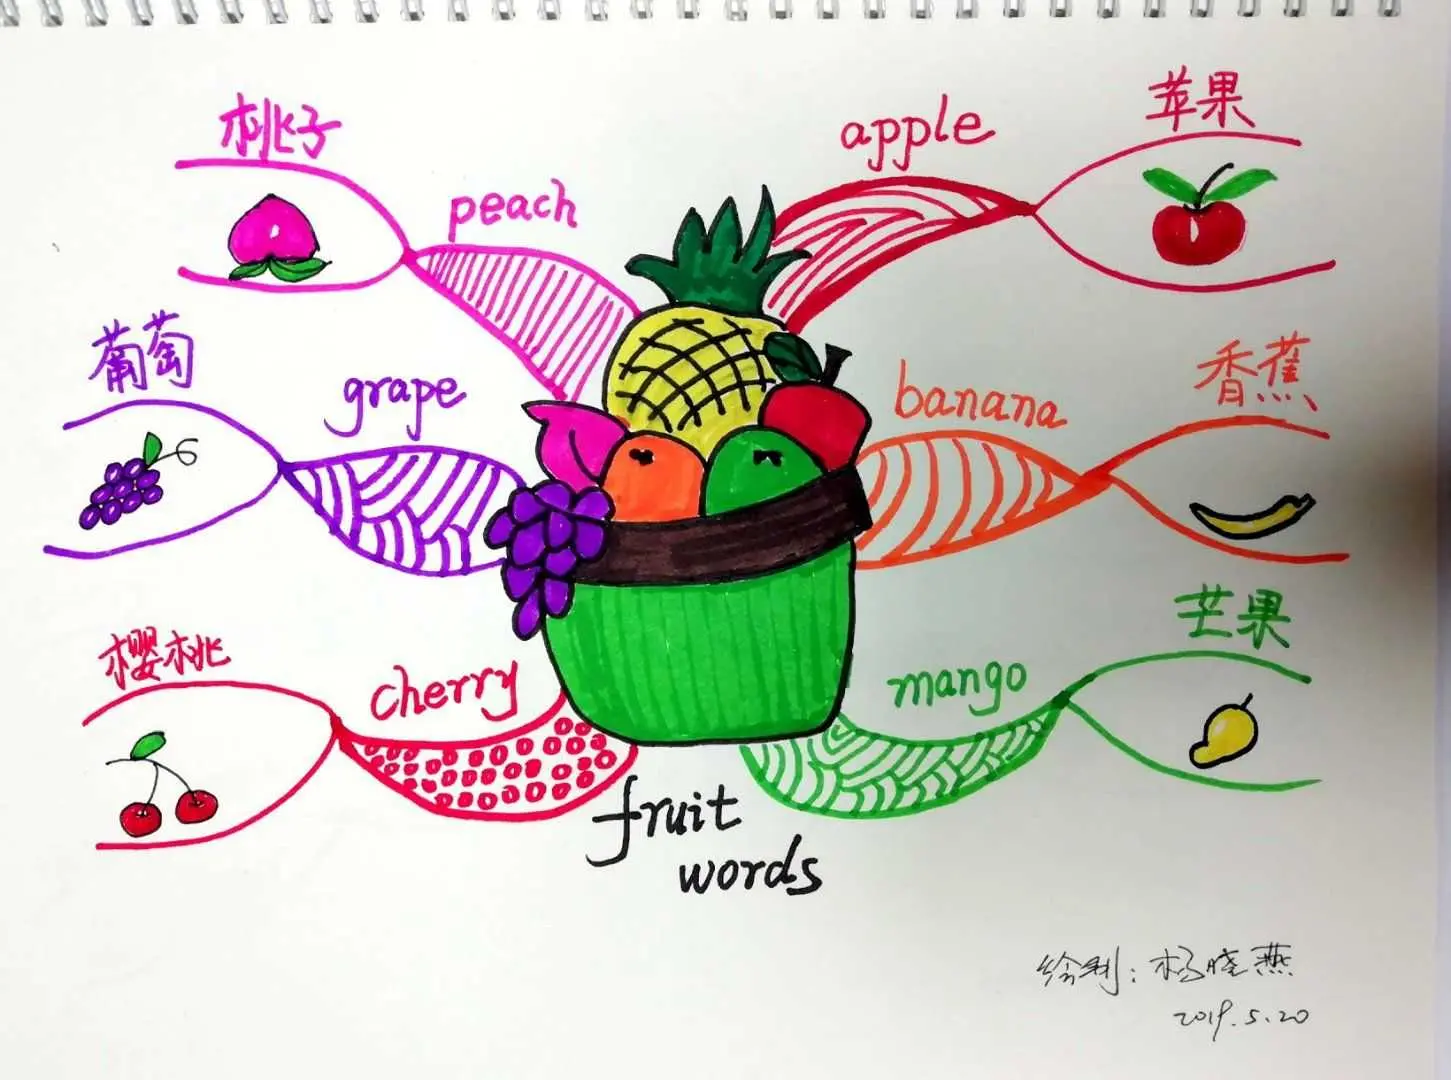 桃子
peach
葡萄
grape
樱桃
cherry
apple
苹果
banana
香蕉
mango
芒果
fruit
words
绘制：杨晓燕
2019.5.20